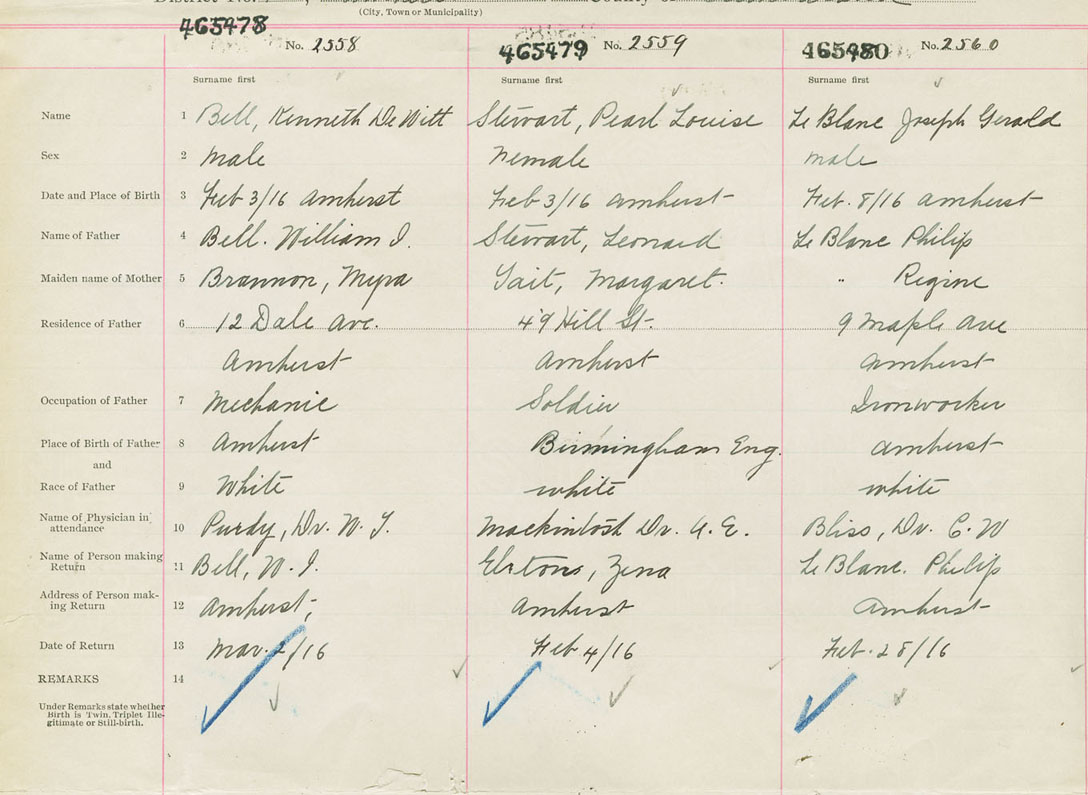 District No.
County of
(City, Town or Municipality)
465478 No. 2558 465479 No. 2559 465480 No. 2560
Surname first Surname first Surname first
Name 1 Bell, Kenneth DeWitt Stewart, Pearl Louise Le Blanc Joseph Gerald
Sex 2 male Female male
Date and Place of Birth 3 Feb 3/16 amherst Feb 3/16 amherst Feb. 8/16 amherst
Name of Father 4 Bell. William I. Stewart, Leonard Le Blanc Philip
Maiden name of Mother 5 Brannon, Myra Tait, Margaret. " Regine
Residence of Father 6 12 Dale Ave. 49 Hill St. 9 Maple Ave
Amherst Amherst Amherst
Occupation of Father 7 Mechanic Soldier Ironworker
Place of Birth of Father 8 Amherst Birmingham Eng. amherst
and
Race of Father 9 White white white
Name of Physician in
attendance 10 Purdy, Dr. Mackintosh Dr. A. E. Bliss, Dr. C. W
Name of Person making
Return 11 Bell, W. I. Zena Le Blanc. Philip
Address of Person mak-
ing Return 12 Amherst, Amherst Amherst
Date of Return 13 Mar. 2/16 Feb 4/16 Feb. 28/16
REMARKS 14
Under Remarks state whether
Birth is Twin, Triplet Ille-
gitimate or Still-birth.